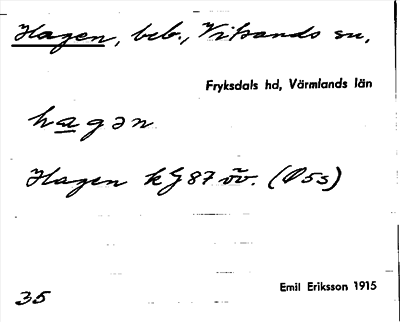 Hagen, beb., Vitsands sn,
Fryksdals hd, Värmlands län
hagən
Hagen kG 87 öv. (Ø5s)
35
Emil Eriksson 1915